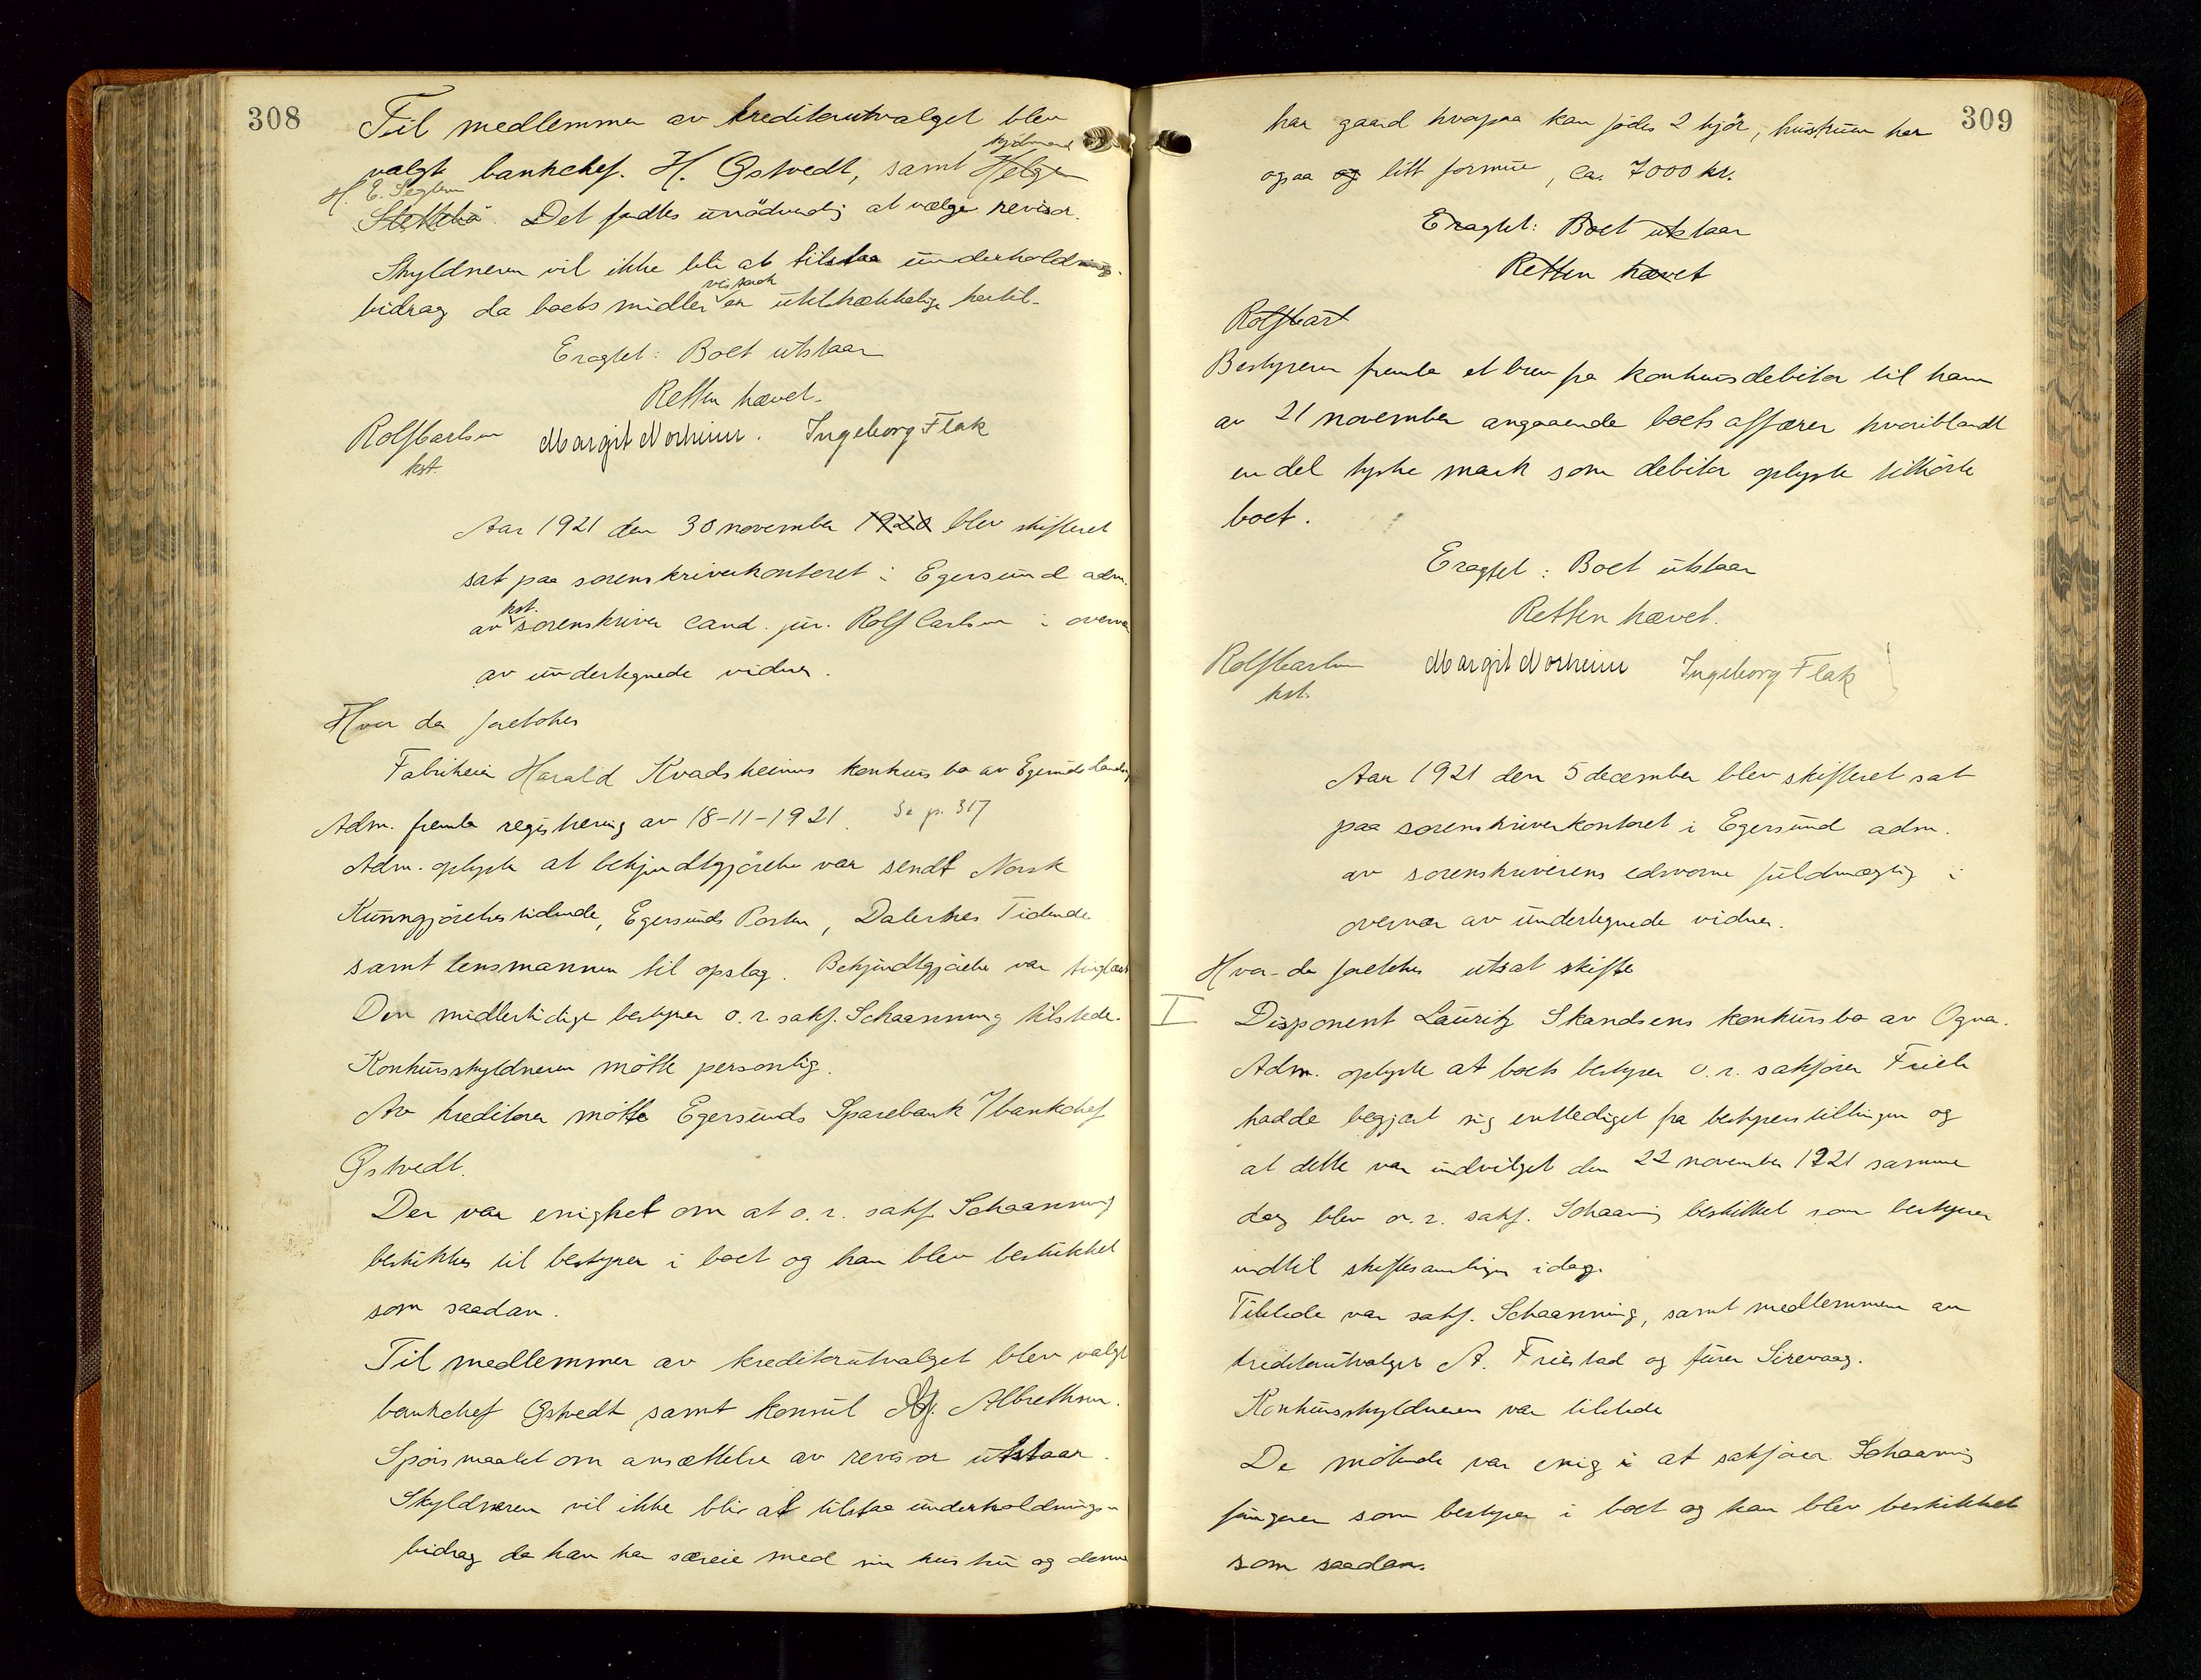 308
Til medlemmer av kreditorutvalget blev
valgt bankchef. H. Østvedt, samt Helge kjöbmand
H. E. Seglem
Slettebö. Det fandtes unödvendig at vælge revisor.
Skyldneren vil ikke bli at tilstaa underholdnings-
bidrag da boets midler er utilstrækkelige hertil.
Eragtet: Boet utstaar
Retten hævet.
Rolf Carlsen Margit Norheim. Ingeborg Flak
kst.
Aar 1921 den 30 november 1920 blev skifteret
sat paa sorenskriverkontoret i Egersund adm.
av kst. sorenskriver cand. jur. Rolf Carlsen i overvær
av undertegnede vidner.
Hvor da foretokes
Fabrikeier Harald Kvadsheims konkursbo av Egersunds landsogn
Adm. fremla registrering av 18-11-1921. Se p. 317
Adm. oplyste at bekjendtgjörelse var sendt Norsk
Kunngjörelsestidende, Egersunds Posten, Dalernes Tidende
samt lensmannen til opslag. Bekjendtgjörelse var tinglæst
Den midlertidige bestyrer o.r. sakf. Schaanning tilstede.
Konkursskyldneren mötte personlig.
Av kreditorer mötte Egersunds Sparebank v/bankchef
Østvedt.
Der var enighet om at o.r. sakf. Schaanning
beskikkes til bestyrer i boet og han blev beskikket
som saadan.
Til medlemmer av kreditorutvalget blev valgt
bankchef Østvedt samt konsul Albrethsen.
Spörsmaalet om ansættelse av revisor utstaar.
Skyldneren vil ikke bli at tilstaa underholdnings-
bidrag da han har særeie med sin hustru og denne
309
har gaard hvorpaa kan födes 2 kjör, hustruen har
ogsaa og litt formue, ca. 7000 kr.
Eragtet: Boet utstaar
Retten hævet
Rolf Carl
Bestyreren fremla et brev fra konkursdebitor til ham
av 21 november angaaende boets affærer hvoriblandt
en del tyske mark som debitor oplyste tilhörte
boet.
Eragtet: Boet utstaar
Retten hævet.
Rolf Carlsen Margit Norheim Ingeborg Flak
kst.
Aar 1921 den 5 december blev skifteret sat
paa sorenskriverkontoret i Egersund adm.
av sorenskriverens edsvorne fuldmægtig i
overvær av undertegnede vidner.
Hvor da foretokes utsat skifte
I Disponent Lauritz Skandsens konkursbo av Ogna.
Adm. oplyste at boets bestyrer o.r. sakförer Friele
hadde begjært sig entlediget fra bestyrerstillingen og
at dette var indvilget den 22 november 1921 samme
dag blev o.r. sakf. Schaaning beskikket som bestyrer
indtil skiftesamlingen idag.
Tilstede var sakf. Schaanning, samt medlemmene av
kreditorutvalget A. Friestad og Sirevaag.
Konkursskyldneren var tilstede
De mötende var enig i at sakförer Schaaning
fungerer som bestyrer i boet og han blev beskikket
som saadan.